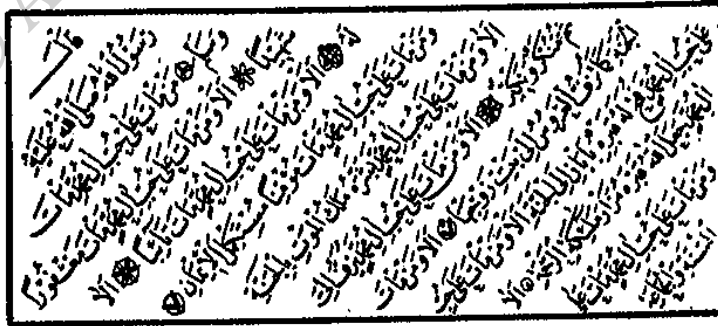 قال
رسول الله صلى الله عليه
وسلم من مات على حب آل محمد مات
شهيدا ألا ومن مات على حب آل محمد مات مغفورا
له ألا ومن مات على حب آل محمد مات تائبا ألا
ومن مات على حب آل محمد مات مؤمنا مستكمل الإيمان
ألا ومن مات على حب آل محمد بشره ملك الموت بالجنة
ثم منكر ونكير ألا ومن مات على حب آل محمد يزف إلى
الجنة كما تزف العروس إلى بيت زوجها ألا ومن مات
على حب آل محمد فتح له في قبره بابان إلى الجنة ألا ومن مات على حب
آل محمد جعل الله قبره مزار ملائكة الرحمة ألا
ومن مات على حب آل محمد مات على
السنة والجماعة